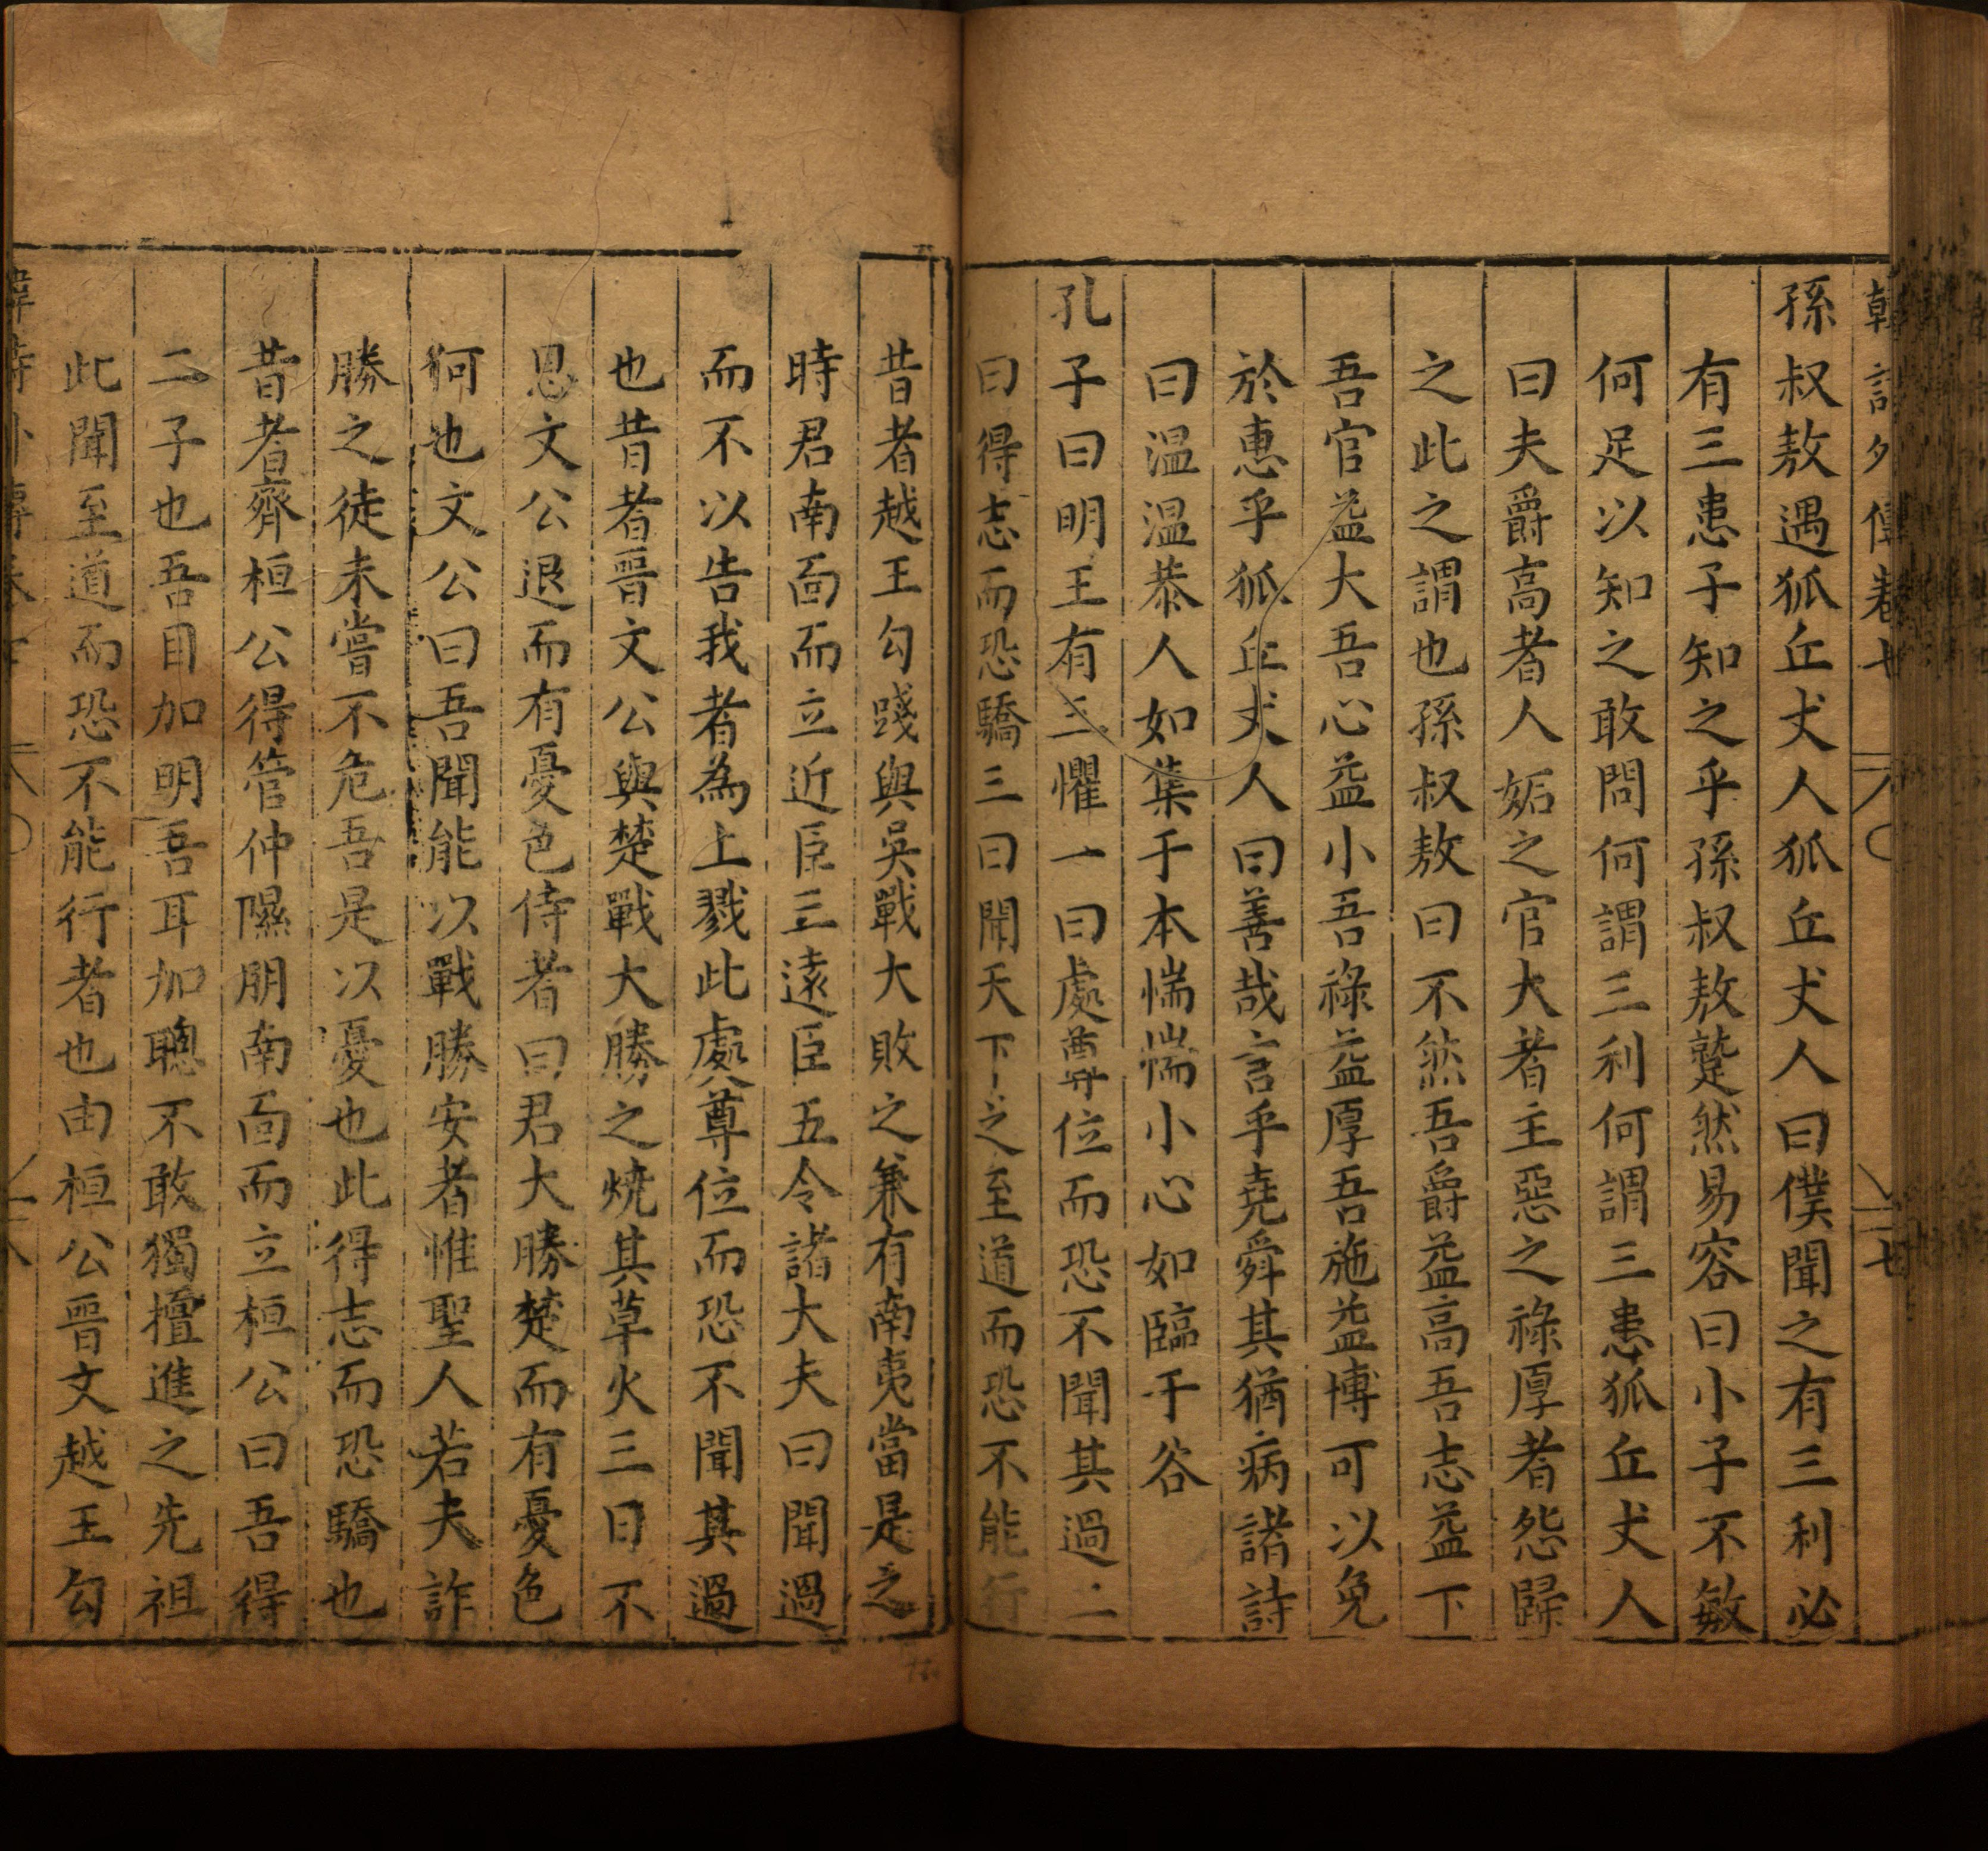 孫叔敖遇狐丘丈人狐丘丈人曰僕聞之有三利必
有三患子知之乎孫叔敖蹵然易容曰小子不敏
何足以知之敢問何謂三利何謂三患狐丘丈人
曰夫爵高者人妬之官大者主惡之祿厚者怨歸
之此之謂也孫叔敖曰不然吾爵益高吾志益下
吾官益大吾心益小吾祿益厚吾施益博可以免
於患乎狐丘丈人曰善哉言乎堯舜其猶病諸詩
曰温温恭人如集于木惴惴小心如臨于谷
孔子曰明王有三懼一曰處尊位而恐不聞其過二
曰得志而恐驕三曰聞天下之至道而恐不能行
昔者越王勾踐與吳戰大敗之兼有南夷當是之
時君南面而立近臣三遠臣五令諸大夫曰聞過
而不以告我者為上戮此處尊位而恐不聞其過
也昔者晉文公與楚戰大勝之燒其草火三日不
息文公退而有憂色侍者曰君大勝楚而有憂色
何也文公曰吾聞能以戰勝安者惟聖人若夫詐
勝之徒未嘗不危吾是以憂也此得志而恐驕也
昔者齊桓公得管仲隰朋南面而立桓公曰吾得
二子也吾目加明吾耳加聰不敢獨擅進之先祖
此聞至道而恐不能行者也由桓公晉文越王勾